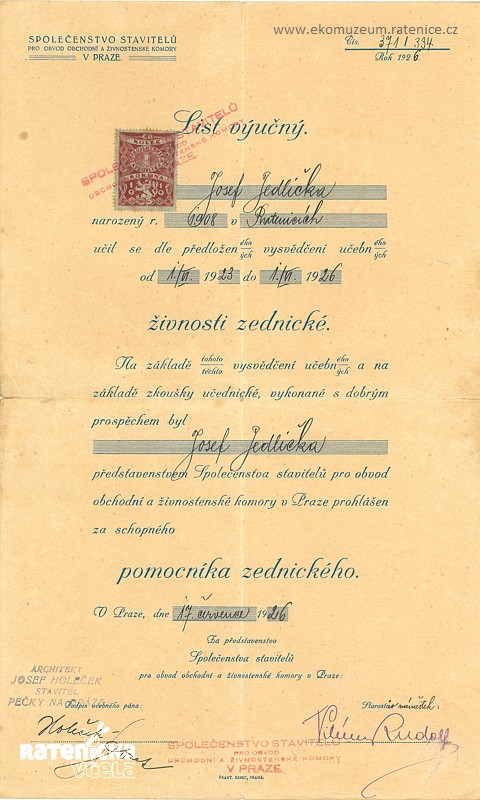 www.ekomuzeum.ratenice.cz
SPOLEČENSTVO STAVITELŮ
PRO OBVOD OBCHODNÍ A ŽIVNOSTENSKÉ KOMORY
V PRAZE.
Čís. 371 / 334
Rok 1926.
List výučný.
KOLEK
1
KORUNA
SPOLEČENSTVO STAVITELŮ
PRO OBVOD
OBCHODNÍ A ŽIVNOSTENSKÉ KOMORY
V PRAZE.
Josef Jedlička
narozený r. 1908 v Ratenicích
učil se dle předložen ého/ých vysvědčení učebn ého/ých
od 1./VI. 1923 do 1./VI. 1926
živnosti zednické.
Na základě tohoto/těchto vysvědčení učebn ého/ých a na
základě zkoušky učednické, vykonané s dobrým
prospěchem byl
Josef Jedlička
představenstvem Společenstva stavitelů pro obvod
obchodní a živnostenské komory v Praze prohlášen
za schopného
pomocníka zednického.
V Praze, dne 17. července 1926
Za představenstvo
Společenstva stavitelů
pro obvod obchodní a živnostenské komory v Praze:
ARCHITEKT
JOSEF HOLEČEK
STAVITEL
PEČKY NA DRÁZE
Podpis učebného pána:
náměstek:
Vilém Rudolf
RATENICKÁ
včela
SPOLEČENSTVO STAVITELŮ
PRO OBVOD
OBCHODNÍ A ŽIVNOSTENSKÉ KOMORY
V PRAZE.